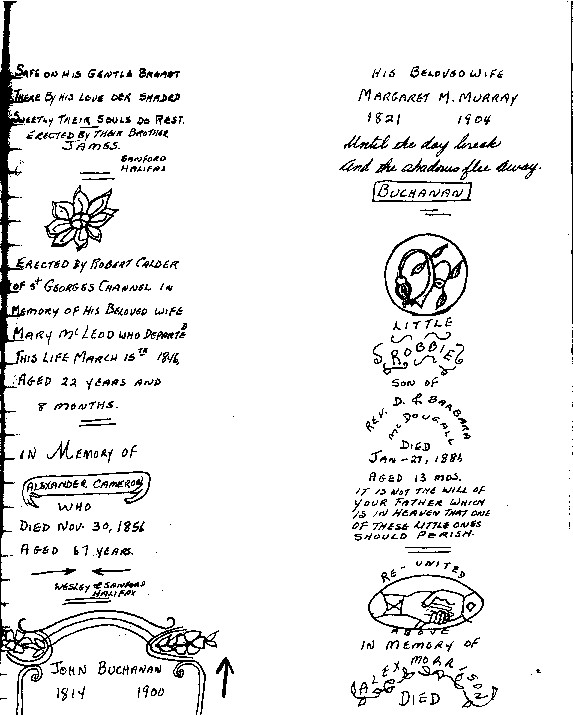 SAFE ON HIS GENTLE BREAST
THERE BY HIS LOVE OER SHADED
SWEETLY THEIR SOULS DO REST.
ERECTED BY THEIR BROTHER
JAMES.
SANFORD
HALIFAX
ERECTED BY ROBERT CALDER
OF St GEORGES CHANNEL IN
MEMORY OF HIS BELOVED WIFE
MARY McLEOD WHO DEPARTED
THIS LIFE MARCH 15TH 1846,
AGED 22 YEARS AND
8 MONTHS.
IN MEMORY OF
ALEXANDER CAMERON
WHO
DIED NOV. 30, 1856
AGED 67 YEARS.
WESLEY & SANFORD
HALIFAX
JOHN BUCHANAN
1814 1900
HIS BELOVED WIFE
MARGARET M. MURRAY
1821 1904
Until the day break
And the shadows flee away.
BUCHANAN
LITTLE
ROBBIE
SON OF
REV. D. & BARBARA
McDOUGALL
DIED
JAN-27, 1886
AGED 13 MOS.
IT IS NOT THE WILL OF
YOUR FATHER WHICH
IS IN HEAVEN THAT ONE
OF THESE LITTLE ONES
SHOULD PERISH.
RE-UNITED
ABOVE
IN MEMORY OF
ALEX MORRISON
DIED